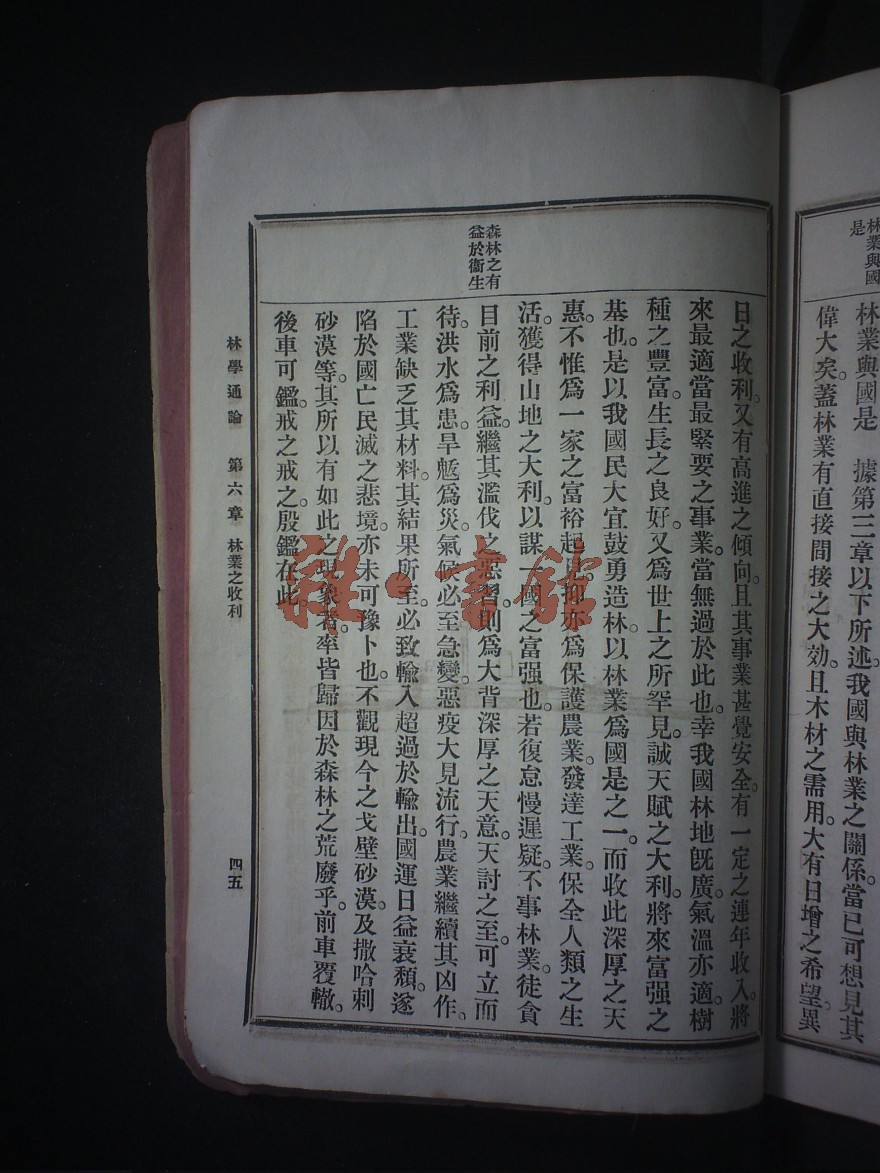 林業與國
是
林業與國是　據第三章以下所述。我國與林業之關係。當已可想見其
偉大矣。蓋林業有直接間接之大効。且木材之需用。大有日增之希望。異
森林之有
益於衞生
日之收利。又有高進之傾向。且其事業甚覺安全。有一定之連年收入。將
來最適當最緊要之事業。當無過於此也。幸我國林地旣廣。氣溫亦適。樹
種之豐富。生長之良好。又爲世上之所罕見。誠天賦之大利。將來富强之
基也。是以我國民大宜鼓勇造林。以林業爲國是之一。而收此深厚之天
惠。不惟爲一家之富裕起見。抑亦爲保護農業。發達工業。保全人類之生
活。獲得山地之大利。以謀一國之富强也。若復怠慢遲疑。不事林業。徒貪
目前之利益。繼其濫伐之惡習。則爲大背深厚之天意。天討之至。可立而
待。洪水爲患。旱魃爲災。氣候必至急變。惡疫大見流行。農業繼續其凶作。
工業缺乏其材料。其結果所至。必致輸入超過於輸出。國運日益衰頹。遂
陷於國亡民滅之悲境。亦未可豫卜也。不觀現今之戈壁砂漠。及撒哈剌
砂漠等。其所以有如此之現象者。率皆歸因於森林之荒廢乎。前車覆轍。
後車可鑑。戒之戒之。殷鑑在此。
林學通論　第六章　林業之收利
四五